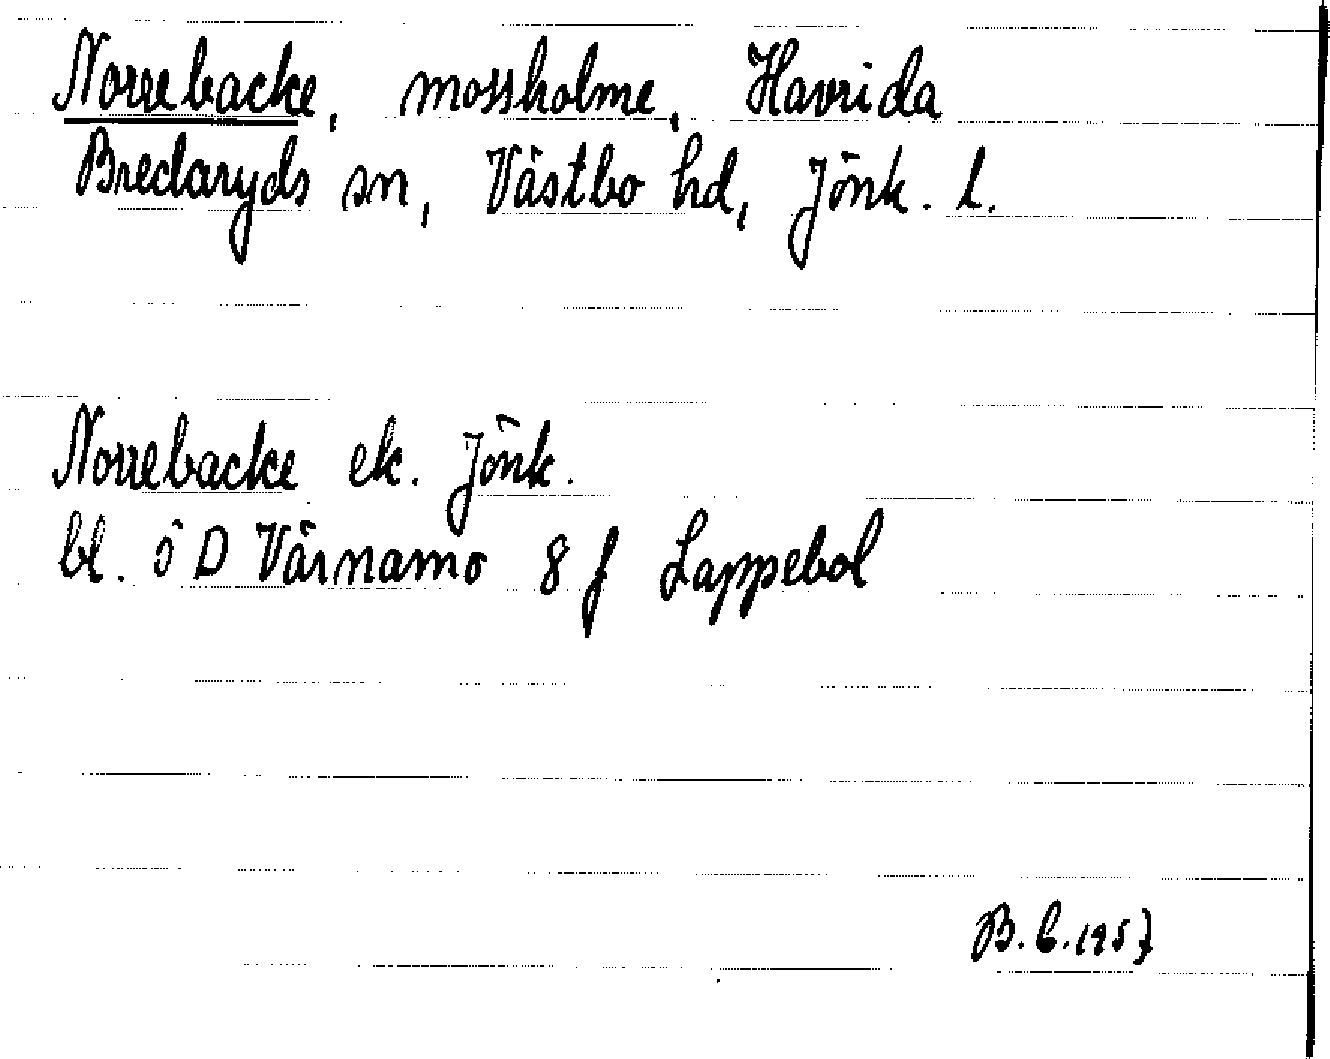 Norrebacke, mossholme, Havrida
Bredaryds sn, Västbo hd, Jönk. l.
Norrebacke ek. Jönk.
bl. 5 D Värnamo 8 f Lappebol
B.C. 1957